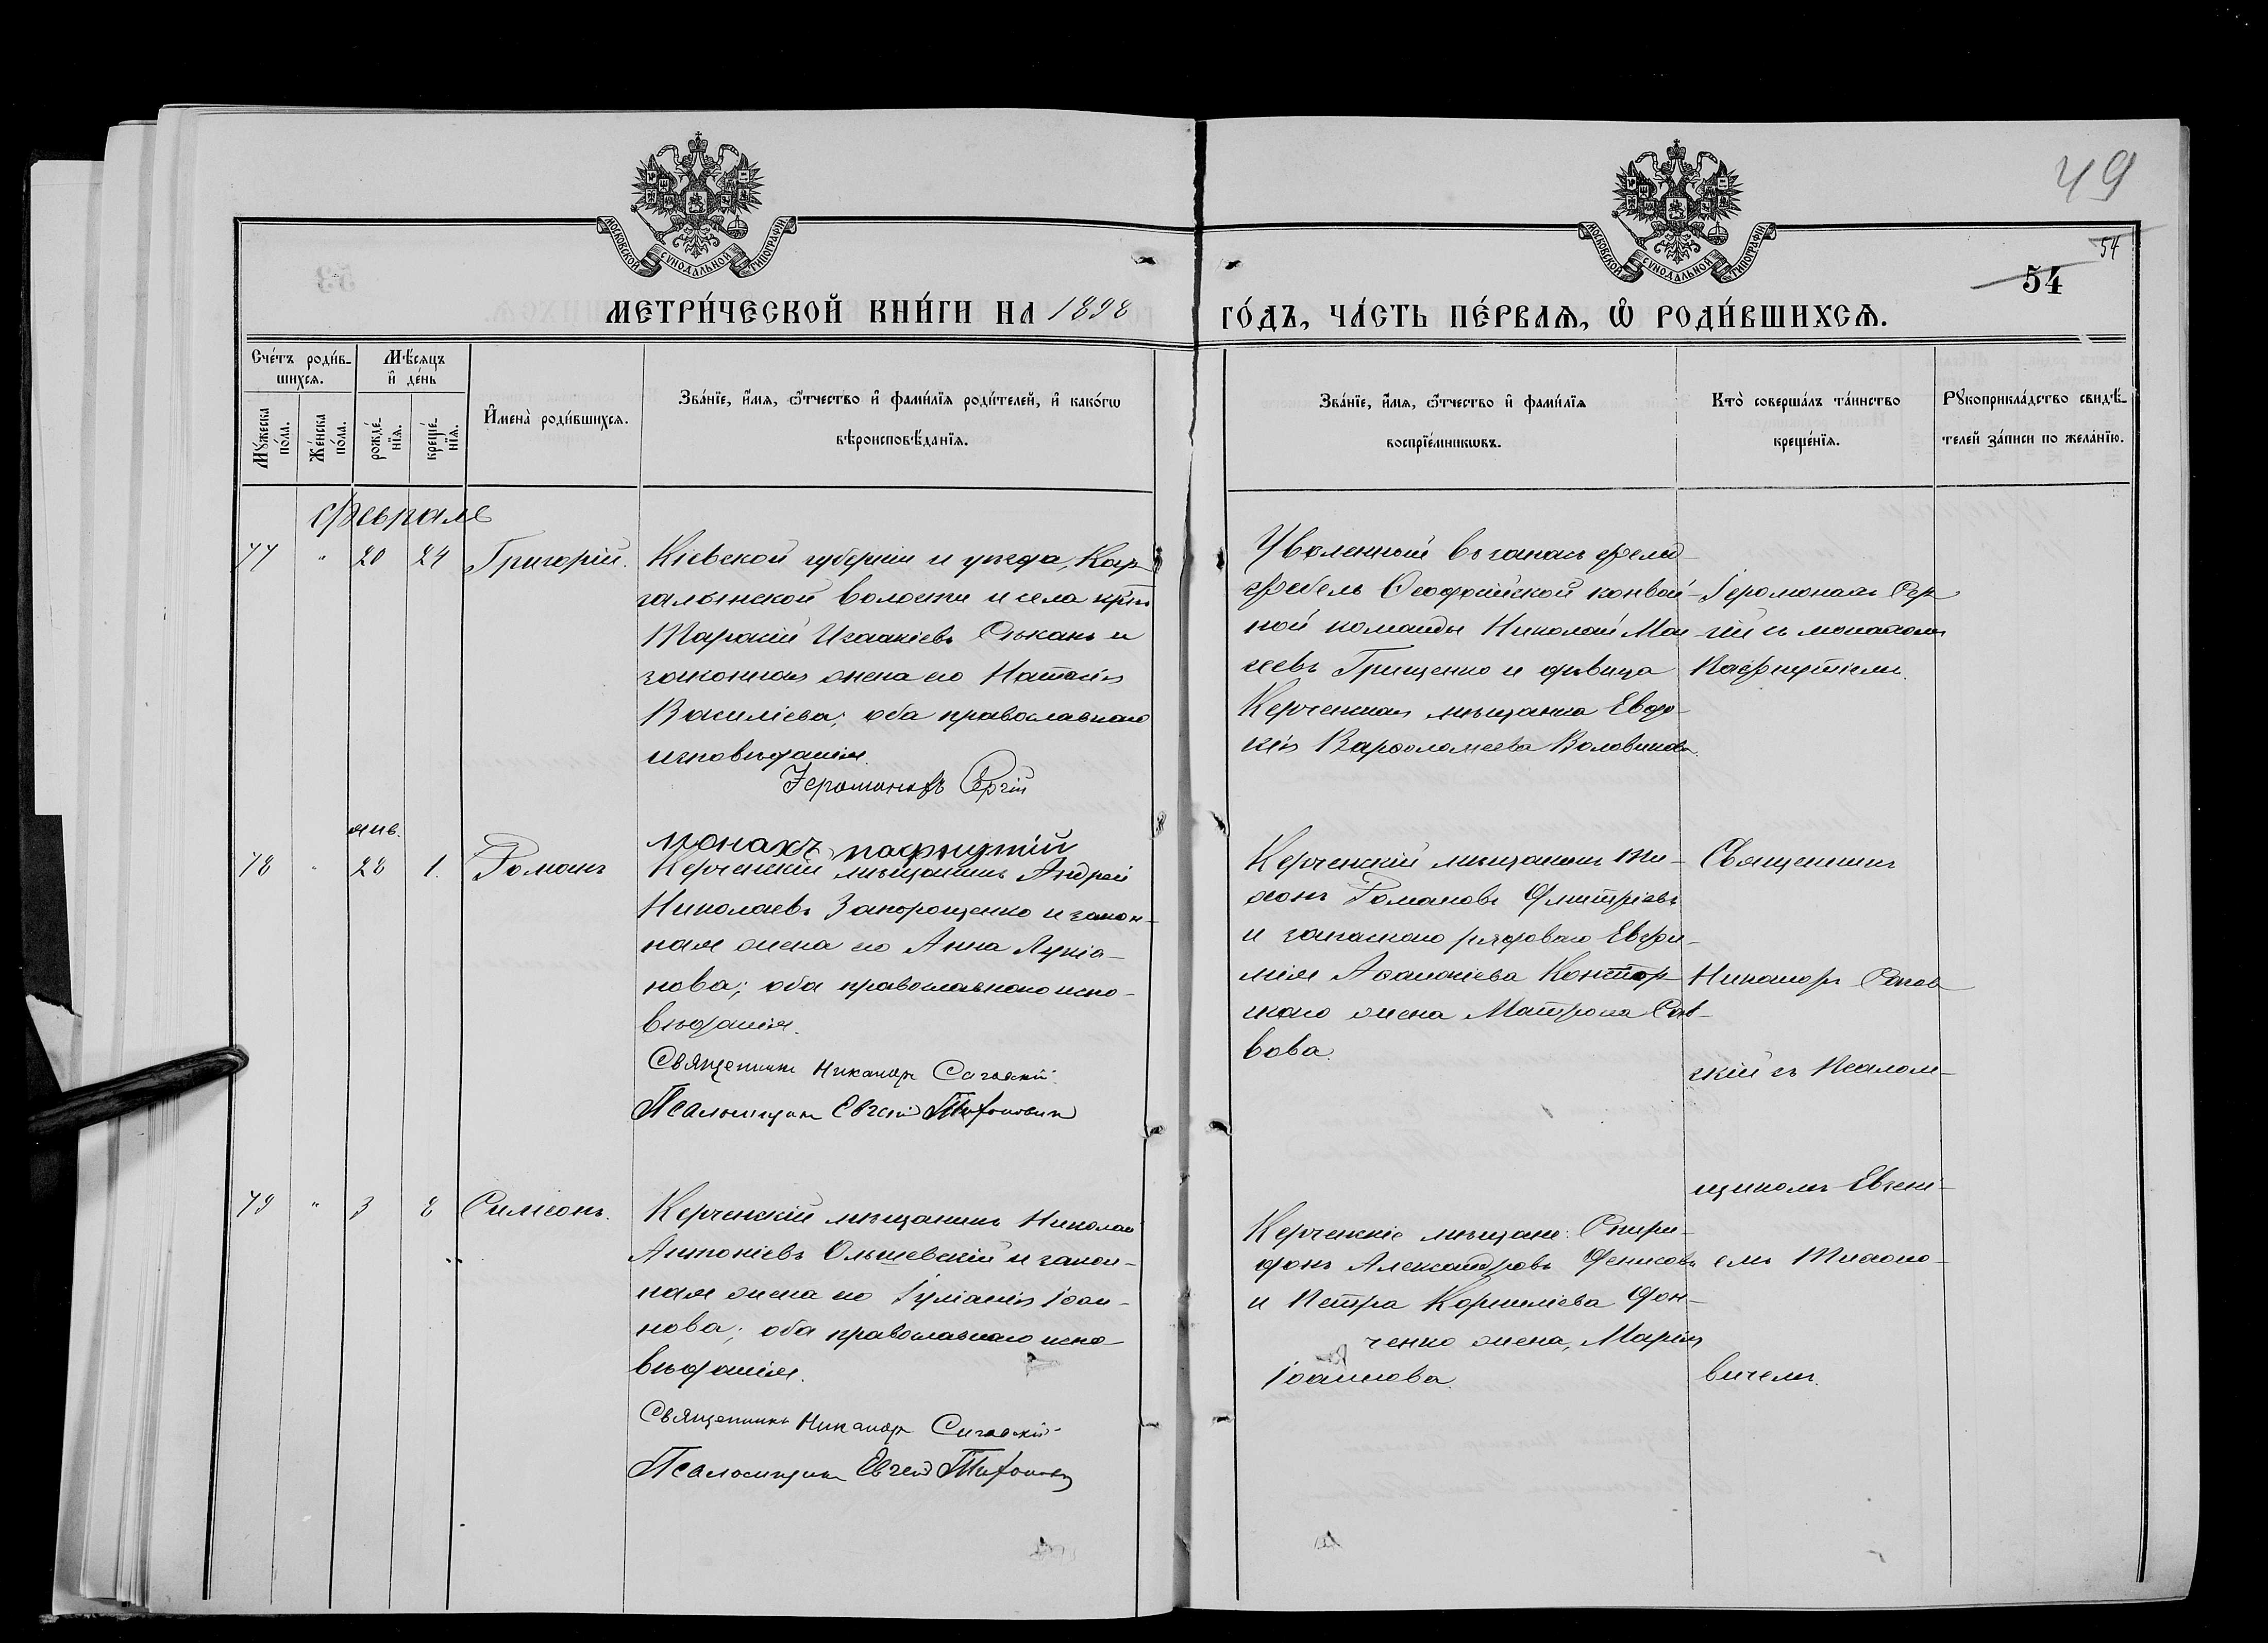 49
МОСКОВСКОЙ СУНОДАЛЬНОЙ ТИПОГРАФІИ
МОСКОВСКОЙ СУНОДАЛЬНОЙ ТИПОГРАФІИ
54
54
МЕТРИ́ЧЕСКОЙ КНИ́ГИ НА 1898
ГО́ДЪ, ЧА́СТЬ ПЕ́РВАѦ, Ѡ РОДИ́ВШИХСѦ.
Сче́тъ роди́в-
шихсѧ.
Мѣ́сѧцъ
и де́нь
Мꙋ́жеска
по́ла.
Же́нска
по́ла.
рожде́-
нїѧ.
креще́-
нїѧ.
И҆мена̀ роди́вшихсѧ.
Зва́нїе, и҆́мѧ, ѻ҆́тчество и҆ фами́лїѧ роди́телей, и҆ како́гѡ
вѣроисповѣ́данїѧ.
Зва́нїе, и҆́мѧ, ѻ҆́тчество и҆ фами́лїѧ
воспрїе́мникѡвъ.
Кто̀ соверша́лъ та́инство
креще́нїѧ.
Рꙋкоприкла́дство свидѣ́-
телей за́писи по жела́нїю.
Февраль
77 " 20 24 Григорій.
Кіевской губерніи и уѣзда,
волости и села крест.
Тарасій Исаакіевъ и
законная жена его Наталія
Василіева; оба православнаго
исповѣданія.
Іеромонахъ Сергій
монахъ пафнутій
Уволенный въ запасъ фельд-
фебель Ѳеодосійской конвой-
ной команды Николай Мои-
сеевъ Грищенко и дѣвица
Керченская мѣщанка Евдо-
кія Варѳоломеева
Іеромонахъ Сер-
гій съ монахомъ
Пафнутіемъ.
янв.
78 " 28 1. Романъ
Керченскій мѣщанинъ Андрей
Николаевъ Запорощенко и закон-
ная жена его Анна Лукіа-
нова; оба православнаго испо-
вѣданія.
Священникъ Никаноръ
Псаломщикъ Евгеній Тихоновичъ
Керченскій мѣщанинъ Ти-
хонъ Романовъ Дмитріевъ
и запаснаго рядоваго Евфи-
мія Аѳанасіева Контор-
скаго жена Матрона Сав-
вова.
Священникъ
Никаноръ
скій съ Псалом-
щикомъ Евгені-
емъ Тихоно-
вичемъ.
79 " 3 8 Симеонъ.
Керченскій мѣщанинъ Николай
Антоніевъ Ольшевскій и закон-
ная жена его Іуліанія Іоан-
нова; оба православнаго испо-
вѣданія.
Священникъ Никаноръ
Псаломщикъ Евгеній Тихоновичъ
Керченскіе мѣщане: Спири-
донъ Александровъ Денисовъ
и Петра Корниліева Дон-
ченко жена, Марія
Іоаннова.